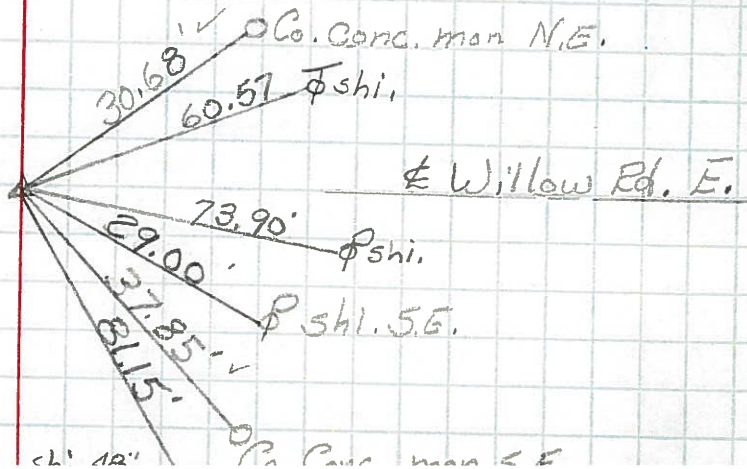 30.68' ✓ Co. Conc. mon N.E.
60.57 shi.
℄ Willow Rd. E.
73.90' shi.
29.00' shi. S.E.
37.85' ✓
81.15'
shi 48" Co Conc. mon S.E.